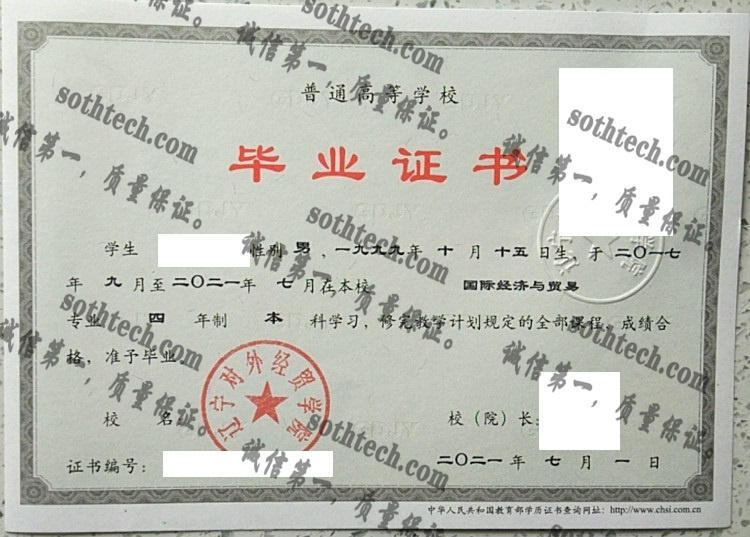 普通高等学校
毕业证书
学生 性别 男，一九九九年 十 月 十五日生，于 二〇一七
年 九 月至 二〇二一年 七 月在本校 国际经济与贸易
专业 四 年制 本 科学习，修完教学计划规定的全部课程，成绩合
格，准予毕业。
校 名： 校（院）长：
辽宁对外经贸学院
证书编号： 二〇二一 年 七 月 一 日
中华人民共和国教育部学历证书查询网址：http://www.chsi.com.cn
sothtech.com
诚信第一，质量保证。
sothtech.com
诚信第一，质量保证。
sothtech.com
诚信第一，质量保证。
sothtech.com
诚信第一，质量保证。
sothtech.com
诚信第一，质量保证。
sothtech.com
诚信第一，质量保证。
sothtech.com
诚信第一，质量保证。